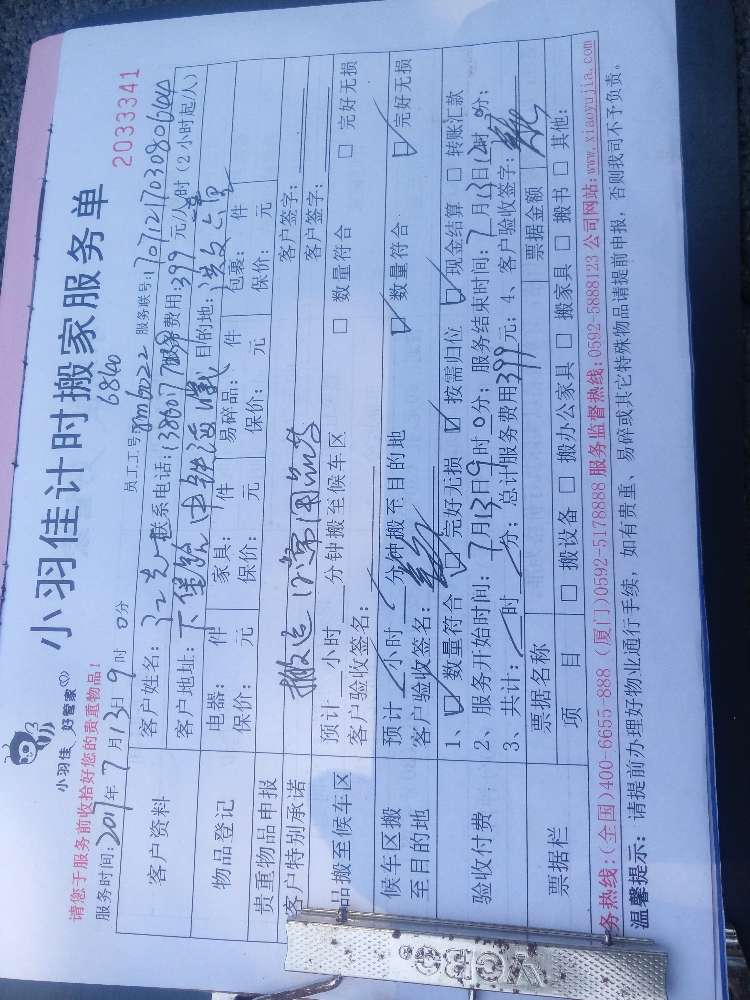 小羽佳 好管家
小羽佳计时搬家服务单
2033341
请您于服务前收拾好您的贵重物品！
6840
服务时间：2017年7月13日9时0分 员工工号： 服务联号：
客户资料
客户姓名： 联系电话： 服务费用：399元/人/时（2小时起/人）
客户地址： 目的地：
物品登记
电器： 件 家具： 件 易碎品： 件 包裹： 件
保价： 元 保价： 元 保价： 元 保价： 元
贵重物品申报 客户签字：
客户特别承诺 搬运日常用品 客户签字：
品搬至候车区
预计 小时 分钟搬至候车区 □ 数量符合 □ 完好无损
客户验收签名：
候车区搬至目的地
预计 小时 分钟搬至目的地 ☑ 数量符合 ☑ 完好无损
客户验收签名：
验收付费
1、☑ 数量符合 ☑ 完好无损 ☑ 按需归位 ☑ 现金结算 □ 转账汇款
2、服务开始时间：7月13日9时0分；服务结束时间：7月13日12时0分；
3、共计： 时 分；总计服务费用399元；4、客户验收签字：
票据栏
票据名称 票据金额
项 目 □ 搬设备 □ 搬办公家具 □ 搬家具 □ 搬书 □ 其他：
务热线：(全国)400-6655-888 (厦门)0592-5178888 服务监督热线：0592-5888123 公司网站：www.xiaoyujia.com
温馨提示：请提前办理好物业通行手续，如有贵重、易碎或其它特殊物品请提前申报，否则我司不予负责。